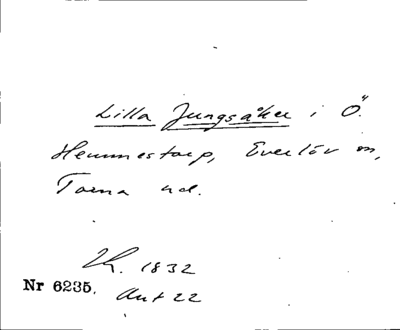 Lilla Jungsåker i Ö.
Hemmestorp, Everlöv sn,
Torna hd.
1832
Nr 6235.
Akt 22